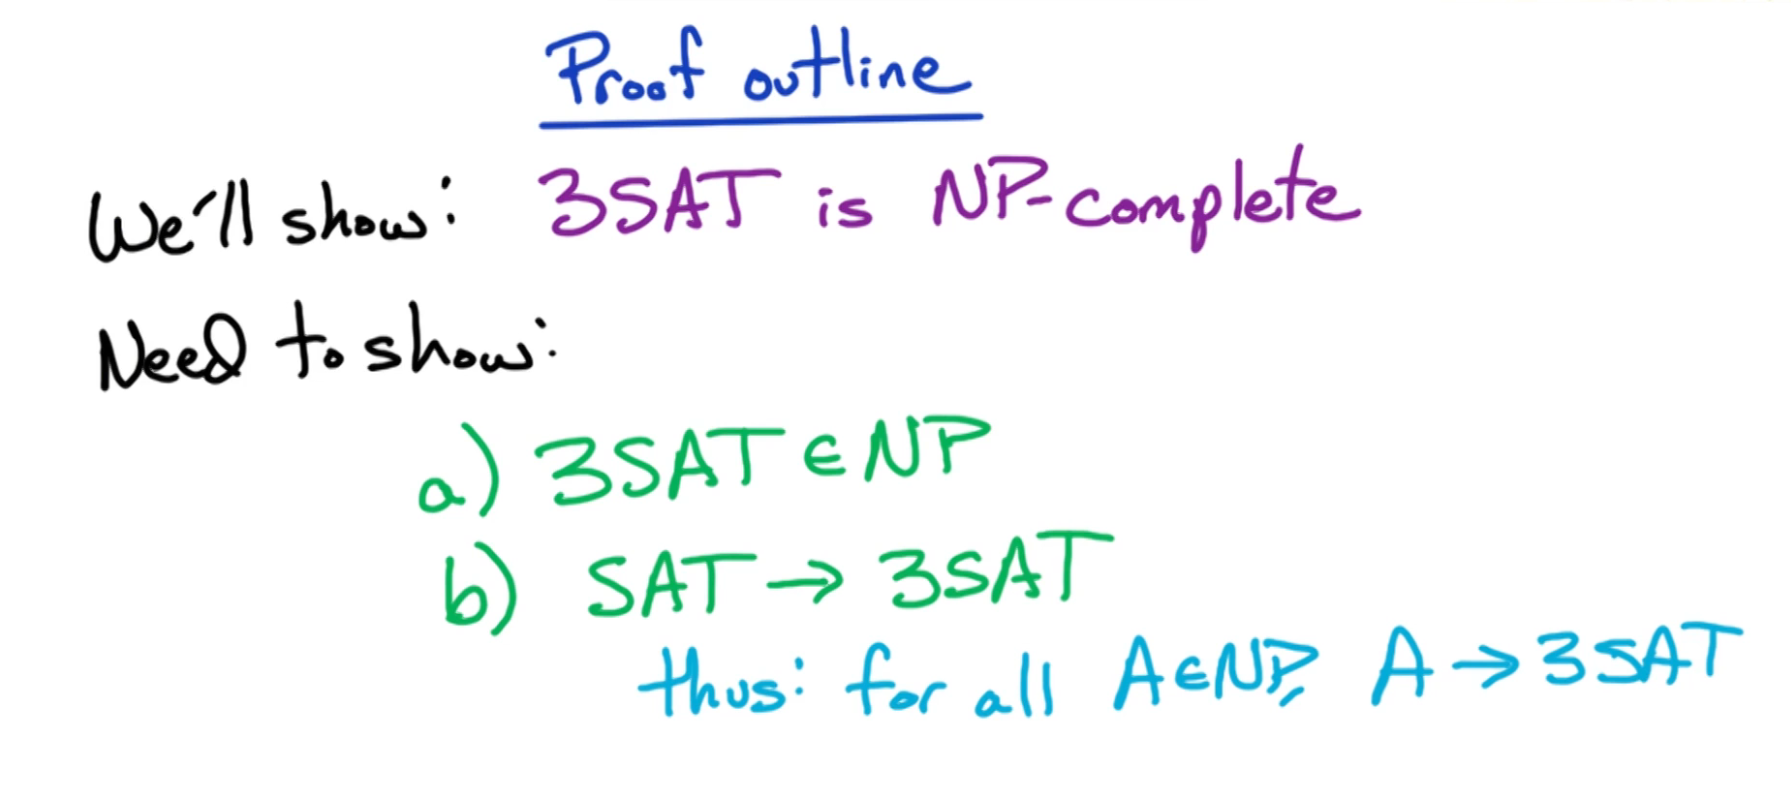 Proof outline
We'll show: 3SAT is NP-complete
Need to show:
a) 3SAT ∈ NP
b) SAT → 3SAT
thus: for all A∈NP, A → 3SAT